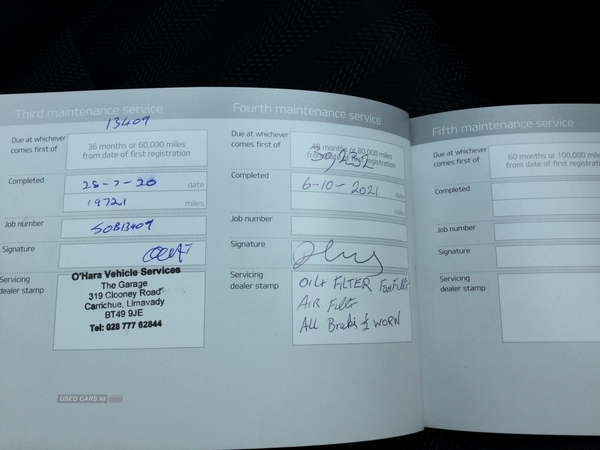 Third maintenance service
13409
Due at whichever comes first of
36 months or 60,000 miles
from date of first registration
Completed
28-7-20 date
19721 miles
Job number
SOB13409
Signature
Servicing
dealer stamp
O'Hara Vehicle Services
The Garage
319 Clooney Road
Carrichue, Limavady
BT49 9JE
Tel: 028 777 62844
Fourth maintenance service
Due at whichever
comes first of
48 months or 80,000 miles
from date of first registration
30,232
Completed
6-10-2021 date
miles
Job number
Signature
Servicing
dealer stamp
OIL+ FILTER Fuel Filter
AIR Filter
ALL Brakes ½ WORN
Fifth maintenance service
Due at whichever
comes first of
60 months or 100,000 miles
from date of first registration
Completed
Job number
Signature
Servicing
dealer stamp
USED CARS NI